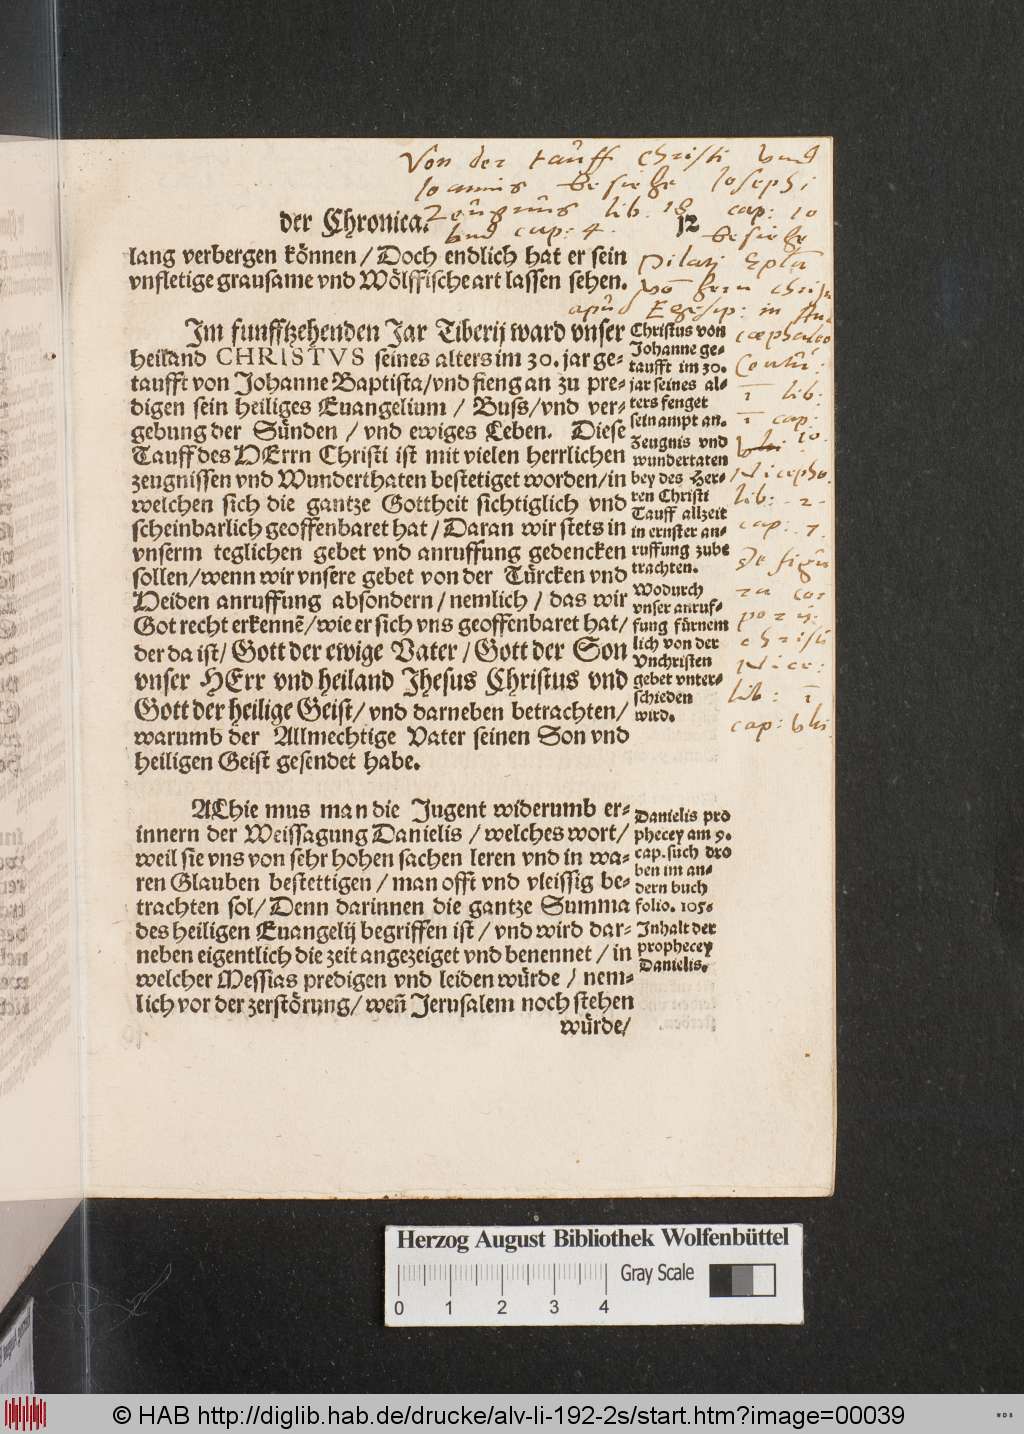 Von der tauff christi vnd
Ioannis besiehe Iosephi
Zeugnus lib. 18 cap: 10
vnd cap: 4.
besiehe
Pilati Eplā
Von herrn christo
apud Egesip: in
der Chronica. 12
lang verbergen können/Doch endlich hat er sein
vnfletige grausame vnd Wölffische art lassen sehen.
Im funfftzehenden Jar Tiberij ward vnser
heiland CHRISTVS seines alters im 30. jar ge-
taufft von Johanne Baptista/vnd fieng an zu pre-
digen sein heiliges Euangelium / Buss/vnd ver-
gebung der Sünden / vnd ewiges Leben. Diese
Tauff des HErrn Christi ist mit vielen herrlichen
zeugnissen vnd Wunderthaten bestetiget worden/in
welchen sich die gantze Gottheit sichtiglich vnd
scheinbarlich geoffenbaret hat/Daran wir stets in
vnserm teglichen gebet vnd anruffung gedencken
sollen/wenn wir vnsere gebet von der Türcken vnd
Heiden anruffung absondern/nemlich/das wir
Got recht erkennē/wie er sich vns geoffenbaret hat/
der da ist/Gott der ewige Vater/Gott der Son
vnser HErr vnd heiland Jhesus Christus vnd
Gott der heilige Geist/vnd darneben betrachten/
warumb der Allmechtige Vater seinen Son vnd
heiligen Geist gesendet habe.
Christus von
Johanne ge-
taufft im 30.
jar seines al-
ters fenget
sein ampt an.
Zeugnis vnd
wundertaten
bey des Her-
ren Christi
Tauff allzeit
in ernster an-
ruffung zube
trachten.
Wodurch
vnser anruf-
fung fürnem
lich von der
Vnchristen
gebet vnter-
schieden
wird.
lib:
cap:
10.
Nicepho.
lib: 2
cap: 7.
De figu
ra cor
poris
christi
Nice:
lib: 1
cap:
AChie mus man die Jugent widerumb er-
innern der Weissagung Danielis /welches wort/
weil sie vns von sehr hohen sachen leren vnd in wa-
ren Glauben bestettigen/man offt vnd vleissig be-
trachten sol/Denn darinnen die gantze Summa
des heiligen Euangelij begriffen ist/vnd wird dar-
neben eigentlich die zeit angezeiget vnd benennet/in
welcher Messias predigen vnd leiden würde / nem-
lich vor der zerstörung/weñ Jerusalem noch stehen
würde/
Danielis pro
phecey am 9.
cap. such dro
ben im an-
dern buch
folio. 105.
Inhalt der
prophecey
Danielis.
Herzog August Bibliothek Wolfenbüttel
Gray Scale
0 1 2 3 4
© HAB http://diglib.hab.de/drucke/alv-li-192-2s/start.htm?image=00039